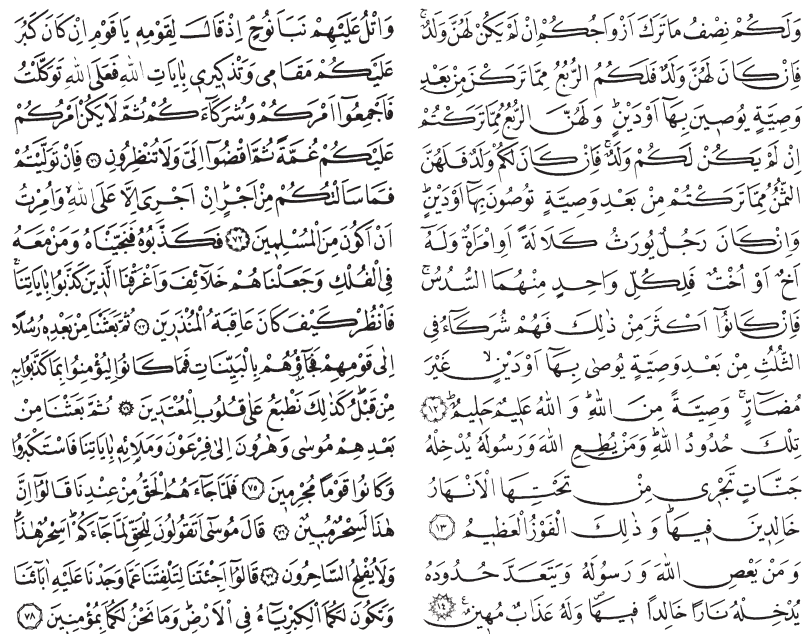 وَلَكُمْ نِصْفُ مَا تَرَكَ اَزْوَاجُكُمْ اِنْ لَمْ يَكُنْ لَهُنَّ وَلَدٌۚ
فَاِنْ كَانَ لَهُنَّ وَلَدٌ فَلَكُمُ الرُّبُعُ مِمَّا تَرَكْنَ مِنْ بَعْدِ
وَصِيَّةٍ يُوصِينَ بِهَٓا اَوْ دَيْنٍۜ وَلَهُنَّ الرُّبُعُ مِمَّا تَرَكْتُمْ
اِنْ لَمْ يَكُنْ لَكُمْ وَلَدٌۚ فَاِنْ كَانَ لَكُمْ وَلَدٌ فَلَهُنَّ
الثُّمُنُ مِمَّا تَرَكْتُمْ مِنْ بَعْدِ وَصِيَّةٍ تُوصُونَ بِهَٓا اَوْ دَيْنٍۜ
وَاِنْ كَانَ رَجُلٌ يُورَثُ كَلَالَةً اَوِ امْرَاَةٌ وَلَهُٓ
اَخٌ اَوْ اُخْتٌ فَلِكُلِّ وَاحِدٍ مِنْهُمَا السُّدُسُۚ
فَاِنْ كَانُٓوا اَكْثَرَ مِنْ ذٰلِكَ فَهُمْ شُرَكَٓاءُ فِى
الثُّلُثِ مِنْ بَعْدِ وَصِيَّةٍ يُوصٰى بِهَٓا اَوْ دَيْنٍۙ غَيْرَ
مُضَٓارٍّۚ وَصِيَّةً مِنَ اللهِۜ وَاللهُ عَلِيمٌ حَلِيمٌۜ ﴿١٢﴾
تِلْكَ حُدُودُ اللهِۜ وَمَنْ يُطِعِ اللهَ وَرَسُولَهُ يُدْخِلْهُ
جَنَّاتٍ تَجْرِى مِنْ تَحْتِهَا الْاَنْهَارُ
خَالِدِينَ فِيهَاۜ وَذٰلِكَ الْفَوْزُ الْعَظِيمُ ﴿١٣﴾
وَمَنْ يَعْصِ اللهَ وَرَسُولَهُ وَيَتَعَدَّ حُدُودَهُ
يُدْخِلْهُ نَارًا خَالِدًا فِيهَاۖ وَلَهُ عَذَابٌ مُهِينٌ۟ ﴿١٤﴾
وَاتْلُ عَلَيْهِمْ نَبَاَ نُوحٍۢ اِذْ قَالَ لِقَوْمِهِ يَا قَوْمِ اِنْ كَانَ كَبُرَ
عَلَيْكُمْ مَقَامِى وَتَذْكِيرِى بِاٰيَاتِ اللهِ فَعَلَى اللهِ تَوَكَّلْتُ
فَاَجْمِعُٓوا اَمْرَكُمْ وَشُرَكَٓاءَكُمْ ثُمَّ لَا يَكُنْ اَمْرُكُمْ
عَلَيْكُمْ غُمَّةً ثُمَّ اقْضُٓوا اِلَىَّ وَلَا تُنْظِرُونِ ﴿٧١﴾ فَاِنْ تَوَلَّيْتُمْ
فَمَا سَاَلْتُكُمْ مِنْ اَجْرٍۜ اِنْ اَجْرِىَ اِلَّا عَلَى اللهِۙ وَاُمِرْتُ
اَنْ اَكُونَ مِنَ الْمُسْلِمِينَ ﴿٧٢﴾ فَكَذَّبُوهُ فَنَجَّيْنَاهُ وَمَنْ مَعَهُ
فِى الْفُلْكِ وَجَعَلْنَاهُمْ خَلَٓائِفَ وَاَغْرَقْنَا الَّذِينَ كَذَّبُوا بِاٰيَاتِنَاۚ
فَانْظُرْ كَيْفَ كَانَ عَاقِبَةُ الْمُنْذَرِينَ ﴿٧٣﴾ ثُمَّ بَعَثْنَا مِنْ بَعْدِهِ رُسُلًا
اِلٰى قَوْمِهِمْ فَجَٓاؤُ۫هُمْ بِالْبَيِّنَاتِ فَمَا كَانُوا لِيُؤْمِنُوا بِمَا كَذَّبُوا بِهِ
مِنْ قَبْلُۜ كَذٰلِكَ نَطْبَعُ عَلٰى قُلُوبِ الْمُعْتَدِينَ ﴿٧٤﴾ ثُمَّ بَعَثْنَا مِنْ
بَعْدِهِمْ مُوسٰى وَهٰرُونَ اِلٰى فِرْعَوْنَ وَمَلَا۬ئِهِ بِاٰيَاتِنَا فَاسْتَكْبَرُوا
وَكَانُوا قَوْمًا مُجْرِمِينَ ﴿٧٥﴾ فَلَمَّا جَٓاءَهُمُ الْحَقُّ مِنْ عِنْدِنَا قَالُٓوا اِنَّ
هٰذَا لَسِحْرٌ مُبِينٌ ﴿٧٦﴾ قَالَ مُوسٰٓى اَتَقُولُونَ لِلْحَقِّ لَمَّا جَٓاءَكُمْۜ اَسِحْرٌ هٰذَاۜ
وَلَا يُفْلِحُ السَّاحِرُونَ ﴿٧٧﴾ قَالُٓوا اَجِئْتَنَا لِتَلْفِتَنَا عَمَّا وَجَدْنَا عَلَيْهِ اٰبَٓاءَنَا
وَتَكُونَ لَكُمَا الْكِبْرِيَٓاءُ فِى الْاَرْضِۜ وَمَا نَحْنُ لَكُمَا بِمُؤْمِنِينَ ﴿٧٨﴾